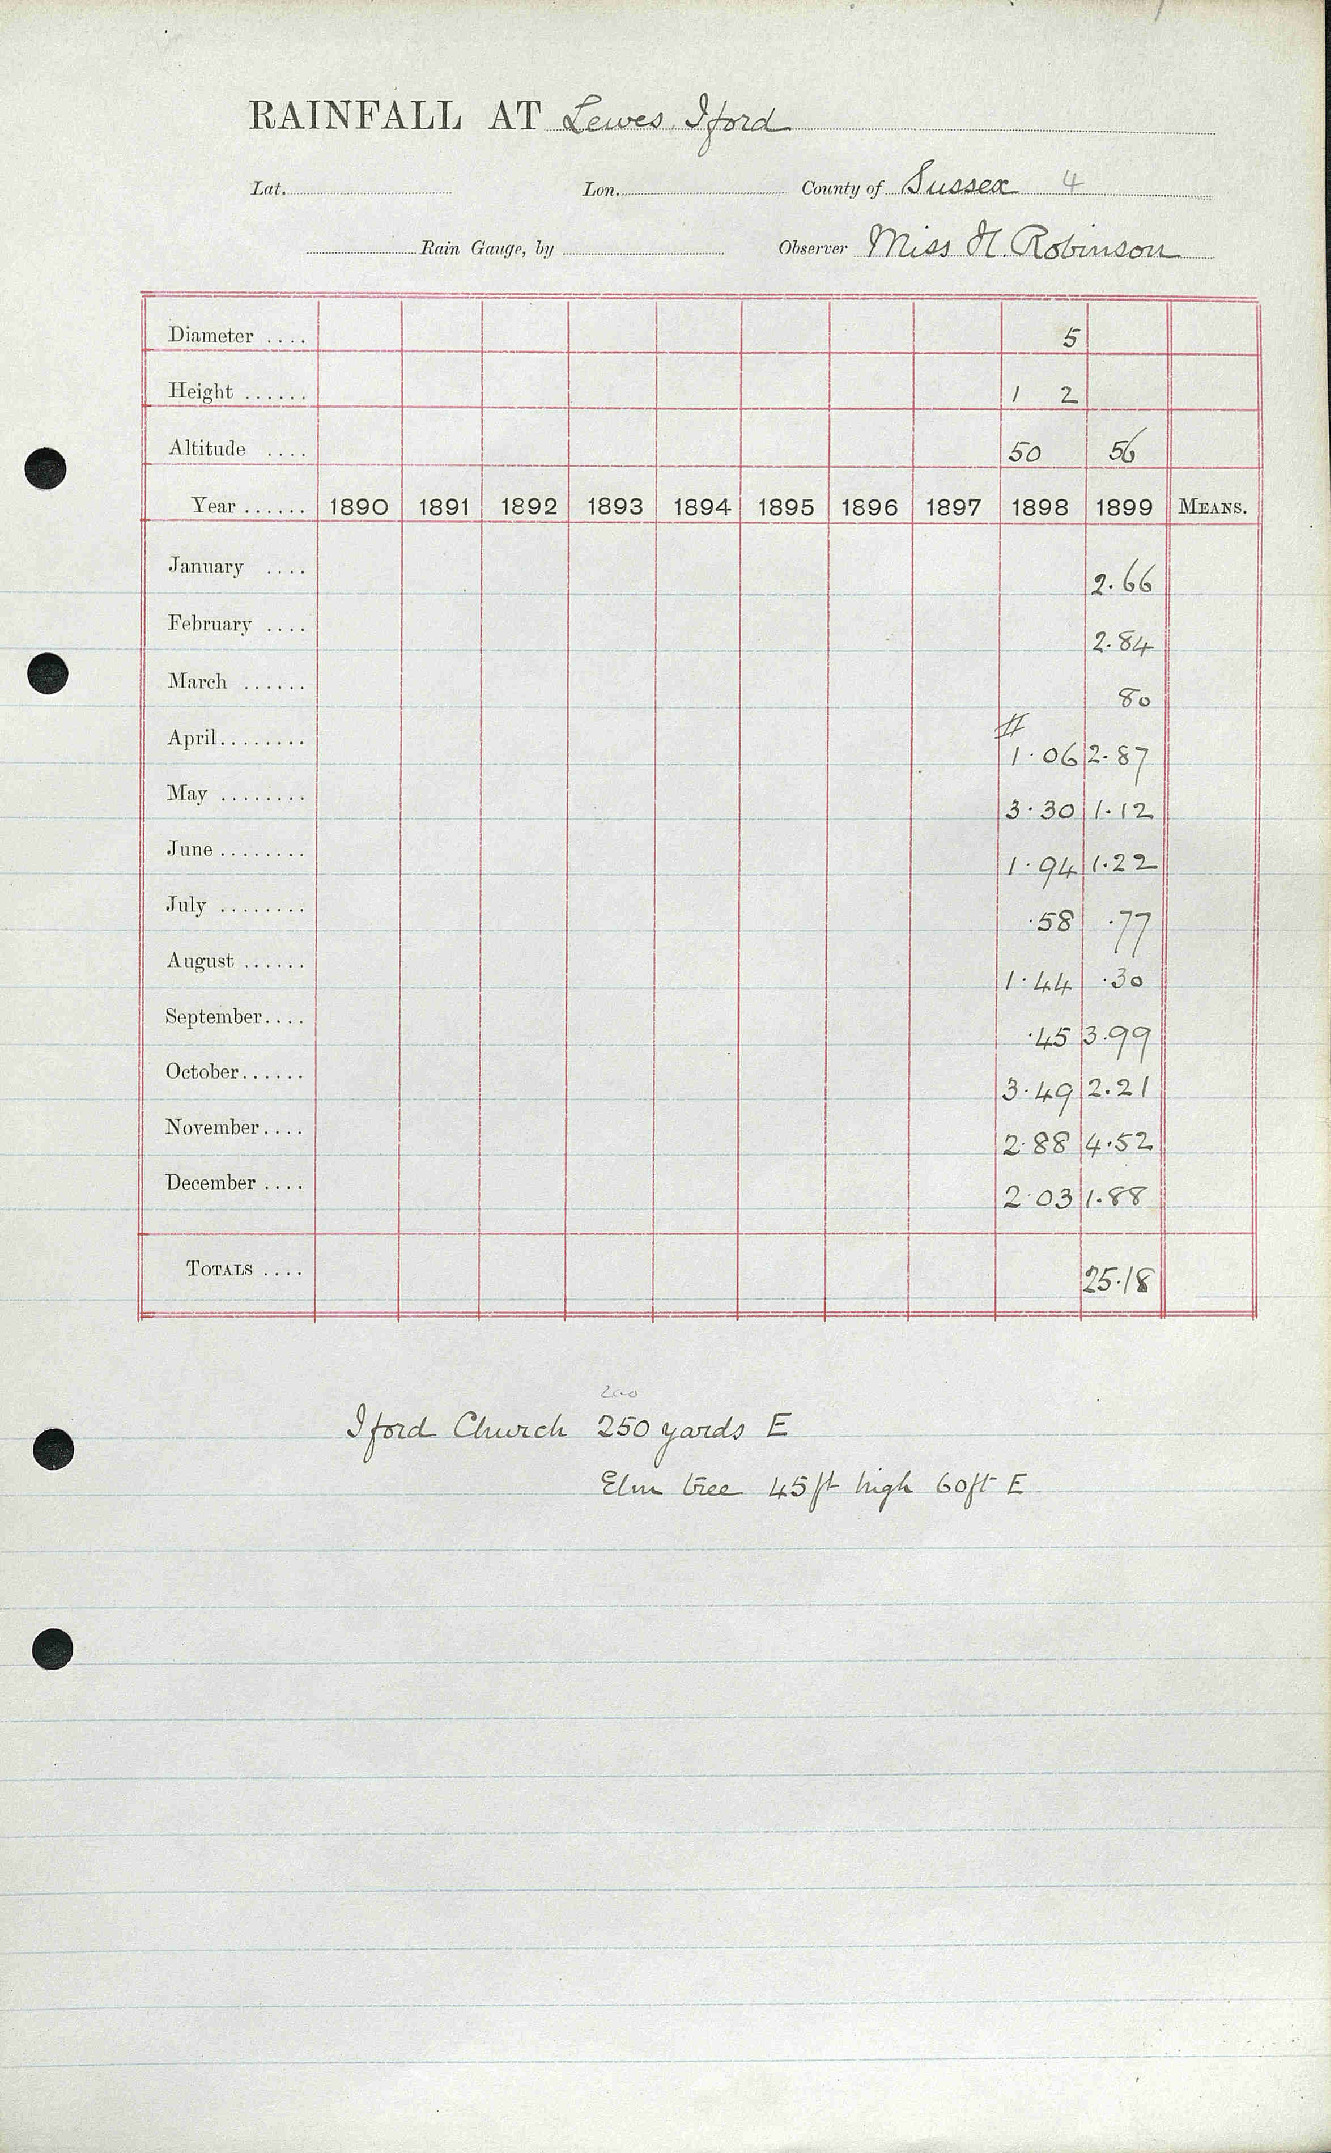 RAINFALL AT Lewes, Iford
Lat. Lon. County of Sussex 4
Rain Gauge, by Observer Miss H. Robinson
Diameter .... 5
Height ...... 1 2
Altitude .... 50 56
Year ...... 1890 1891 1892 1893 1894 1895 1896 1897 1898 1899 MEANS.
January .... 2.66
February .... 2.84
March ...... 80
April........ # 1.06 2.87
May ........ 3.30 1.12
June ........ 1.94 1.22
July ........ .58 .77
August ...... 1.44 .30
September.... .45 3.99
October...... 3.49 2.21
November.... 2.88 4.52
December .... 2.03 1.88
TOTALS .... 25.18
200
Iford Church 250 yards E
Elm tree 45ft high 60ft E